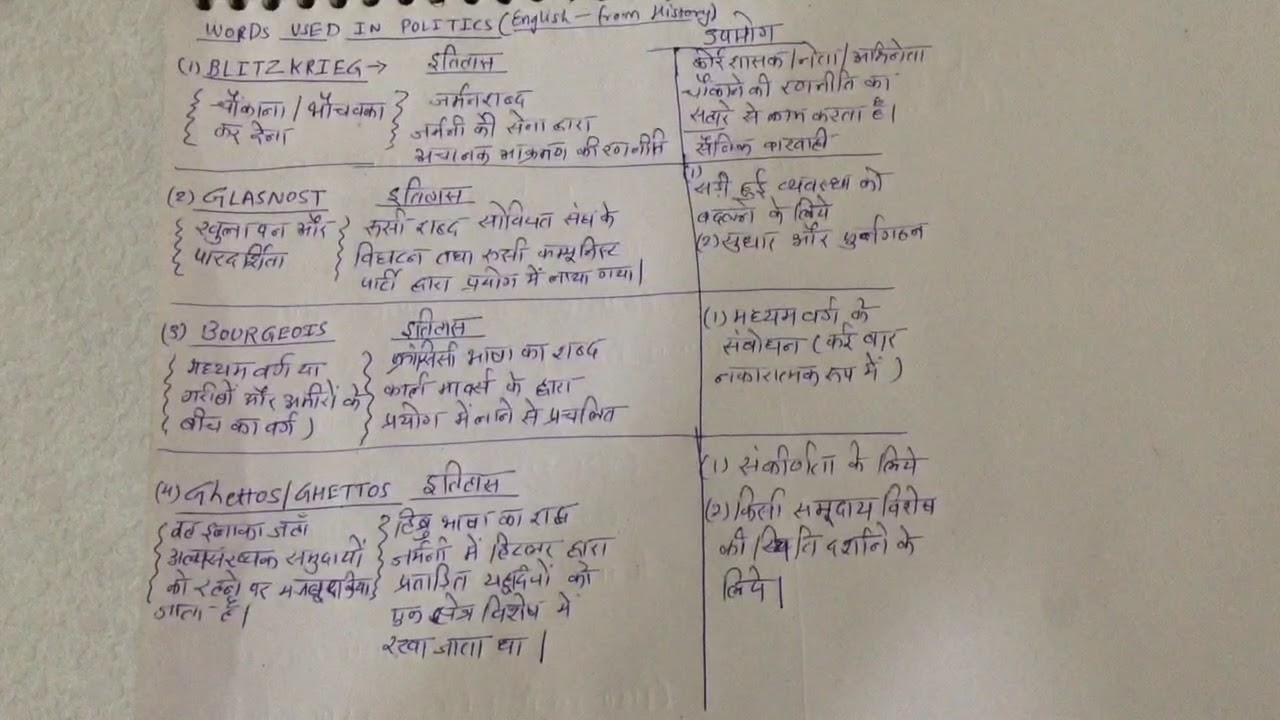 WORDS USED IN POLITICS (English - from History)
उपयोग
(1) BLITZKRIEG → इतिहास
{ चौंकाना / भौचक्का }
कर देना
जर्मन शब्द
जर्मनी की सेना द्वारा
अचानक आक्रमण की रणनीति
कोई शासक / नेता / अभिनेता
चौंकाने की रणनीति का
सहारे से काम करता है।
सैनिक कारवाही
(2) GLASNOST इतिहास
{ खुलापन और }
पारदर्शिता
रूसी शब्द सोवियत संघ के
विघटन तथा रूसी कम्यूनिस्ट
पार्टी द्वारा प्रयोग में लाया गया।
(1)
सड़ी हुई व्यवस्था को
बदलने के लिये
(2) सुधार और पुर्नगठन
(3) BOURGEOIS इतिहास
{ मध्यम वर्ग या }
गरीबों और अमीरों के
बीच का वर्ग )
फ्रांसिसी भाषा का शब्द
कार्ल मार्क्स के द्वारा
प्रयोग में लाने से प्रचलित
(1) मध्यम वर्ग के
संबोधन ( कई बार
नकारात्मक रूप में )
(4) Ghettos/GHETTOS इतिहास
{ वह इलाका जहाँ }
अल्पसंख्यक समुदायों
को रहने पर मजबूर किया
जाता है।
हिब्रु भाषा का शब्द
जर्मनी में हिटलर द्वारा
प्रताड़ित यहूदियों को
एक क्षेत्र विशेष में
रखा जाता था।
(1) संकीर्णता के लिये
(2) किसी समुदाय विशेष
की स्थिति दर्शाने के
लिये।